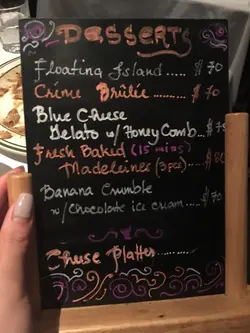 DESSERTS
Floating Island...... $ 70
Créme Brûlée....... $ 70
Blue Cheese
Gelato w/ Honey Comb... $75
Fresh Baked (15 mins)
Madeleines (3pcs).... $80
Banana Crumble
w/ Chocolate ice cream..... $70
Cheese Platter..........